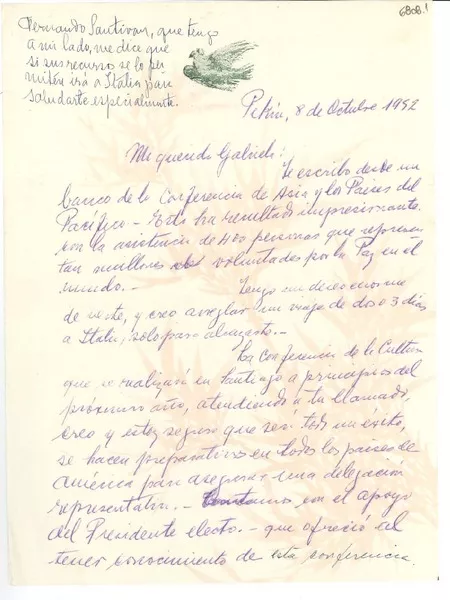 6808.1
Fernando Santivan, que tengo
a mi lado, me dice que
si sus recursos se lo per
miten irá a Italia para
saludarte especialmente.
Pekín, 8 de Octubre 1952
Mi querida Gabriela:
Te escribo desde un
banco de la Conferencia de Asia y los Países del
Pacífico.- Esto ha resultado impresionante
con la asistencia de 400 personas que represen
tan millones de voluntades por la Paz en el
mundo.-
Tengo un deseo enorme
de verte, y creo arreglar un viaje de dos o 3 días
a Italia, solo para abrazarte.-
La conferencia de la Cultura
que se realizará en Santiago a principios del
próximo año, atendiendo a tu llamado,
creo y estoy seguro que será todo un éxito,
se hacen preparativos en todos los países de
America para asegurar una delegación
representativa.- Contamos con el apoyo
del Presidente electo.- que ofreció al
tener conocimiento de esta conferencia.